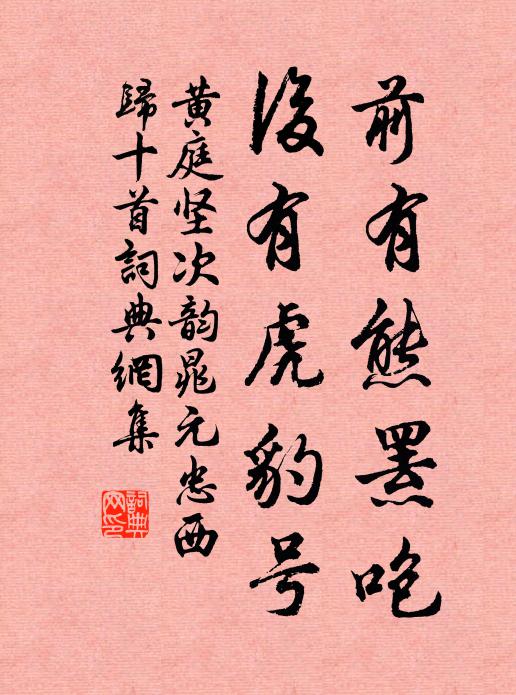 前有熊罴咆
後有虎豹号
黄庭坚次韵晁元忠西
歸十首詞典網集
詞典
网印